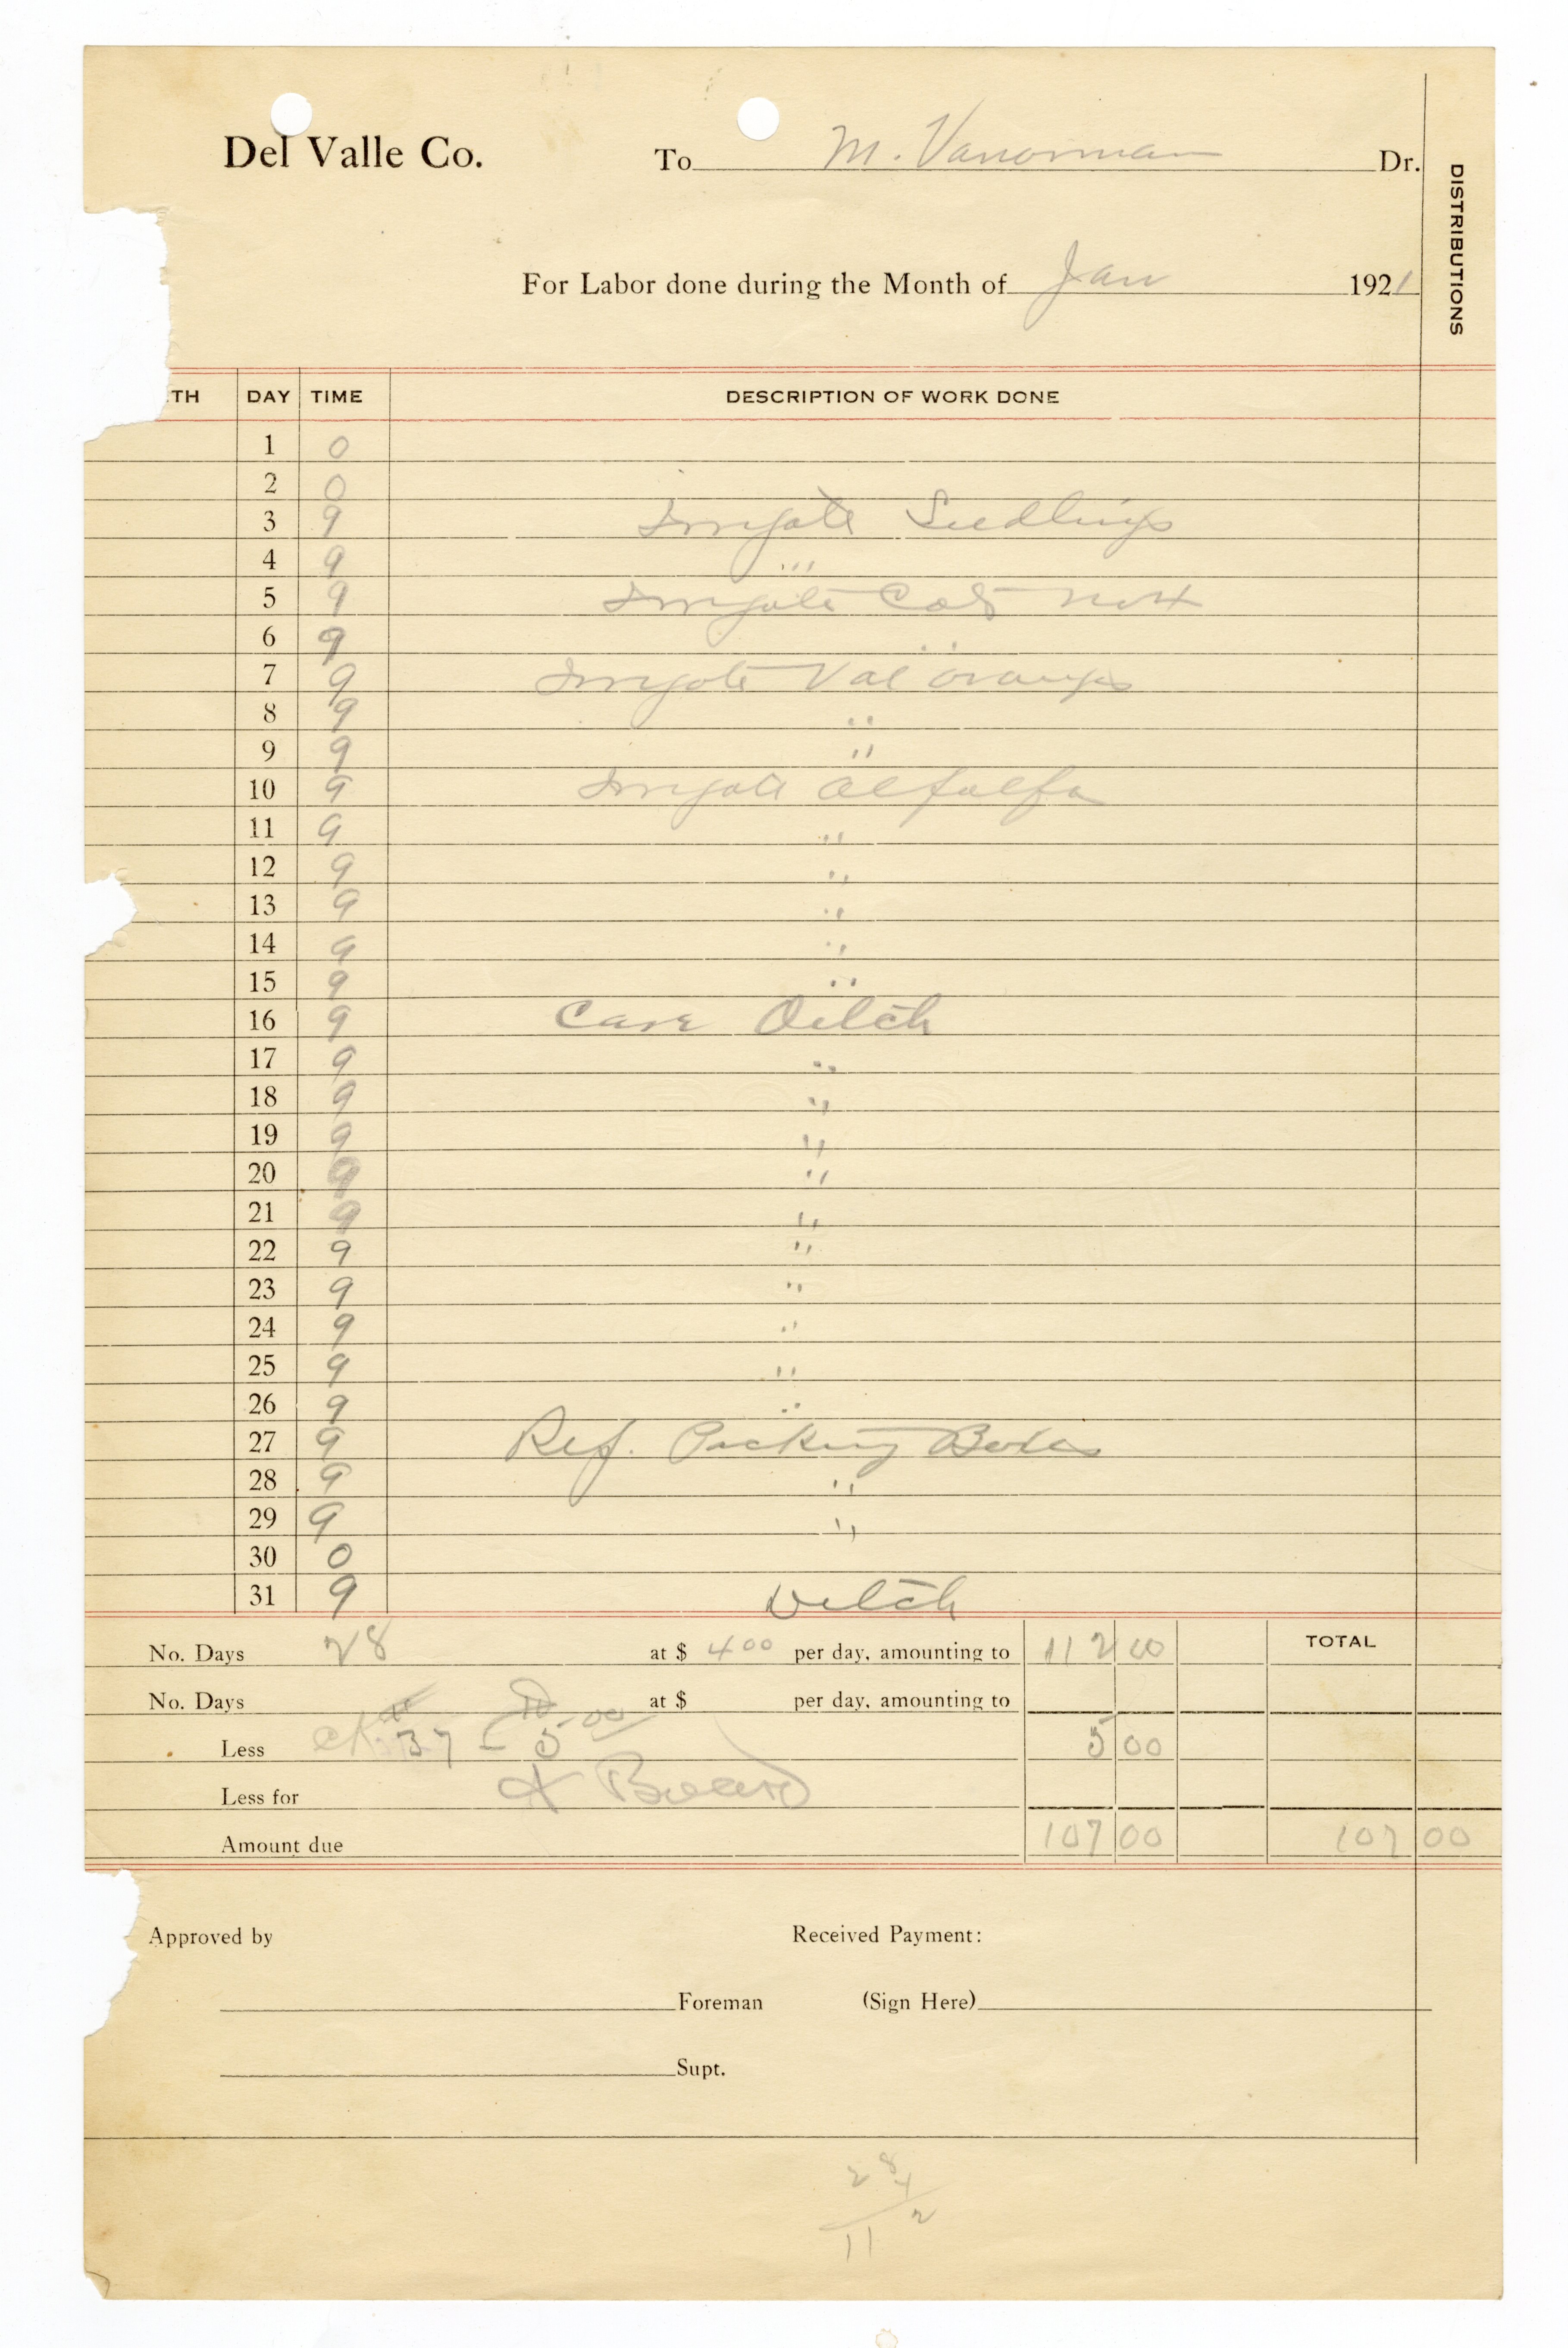 Del Valle Co. To M. Vanorman Dr.
DISTRIBUTIONS
For Labor done during the Month of Jan 1921
TH DAY TIME DESCRIPTION OF WORK DONE
1 0
2 0
3 9 Irrigate Seedlings
4 9 "
5 9 Irrigate
6 9 "
7 9 Irrigate Val oranges
8 9 "
9 9 "
10 9 Irrigate Alfalfa
11 9 "
12 9 "
13 9 "
14 9 "
15 9 "
16 9 Care Ditch
17 9 "
18 9 "
19 9 "
20 9 "
21 9 "
22 9 "
23 9 "
24 9 "
25 9 "
26 9 "
27 9 Packing Boxes
28 9 "
29 9 "
30 0
31 9 Ditch
No. Days 28 at $ 4 00 per day, amounting to 112 00 TOTAL
No. Days at $ per day, amounting to
Less ck # 37 - 5 00 5 00
Less for Board
Amount due 107 00 107 00
Approved by Received Payment:
Foreman (Sign Here)
Supt.
28
4
112